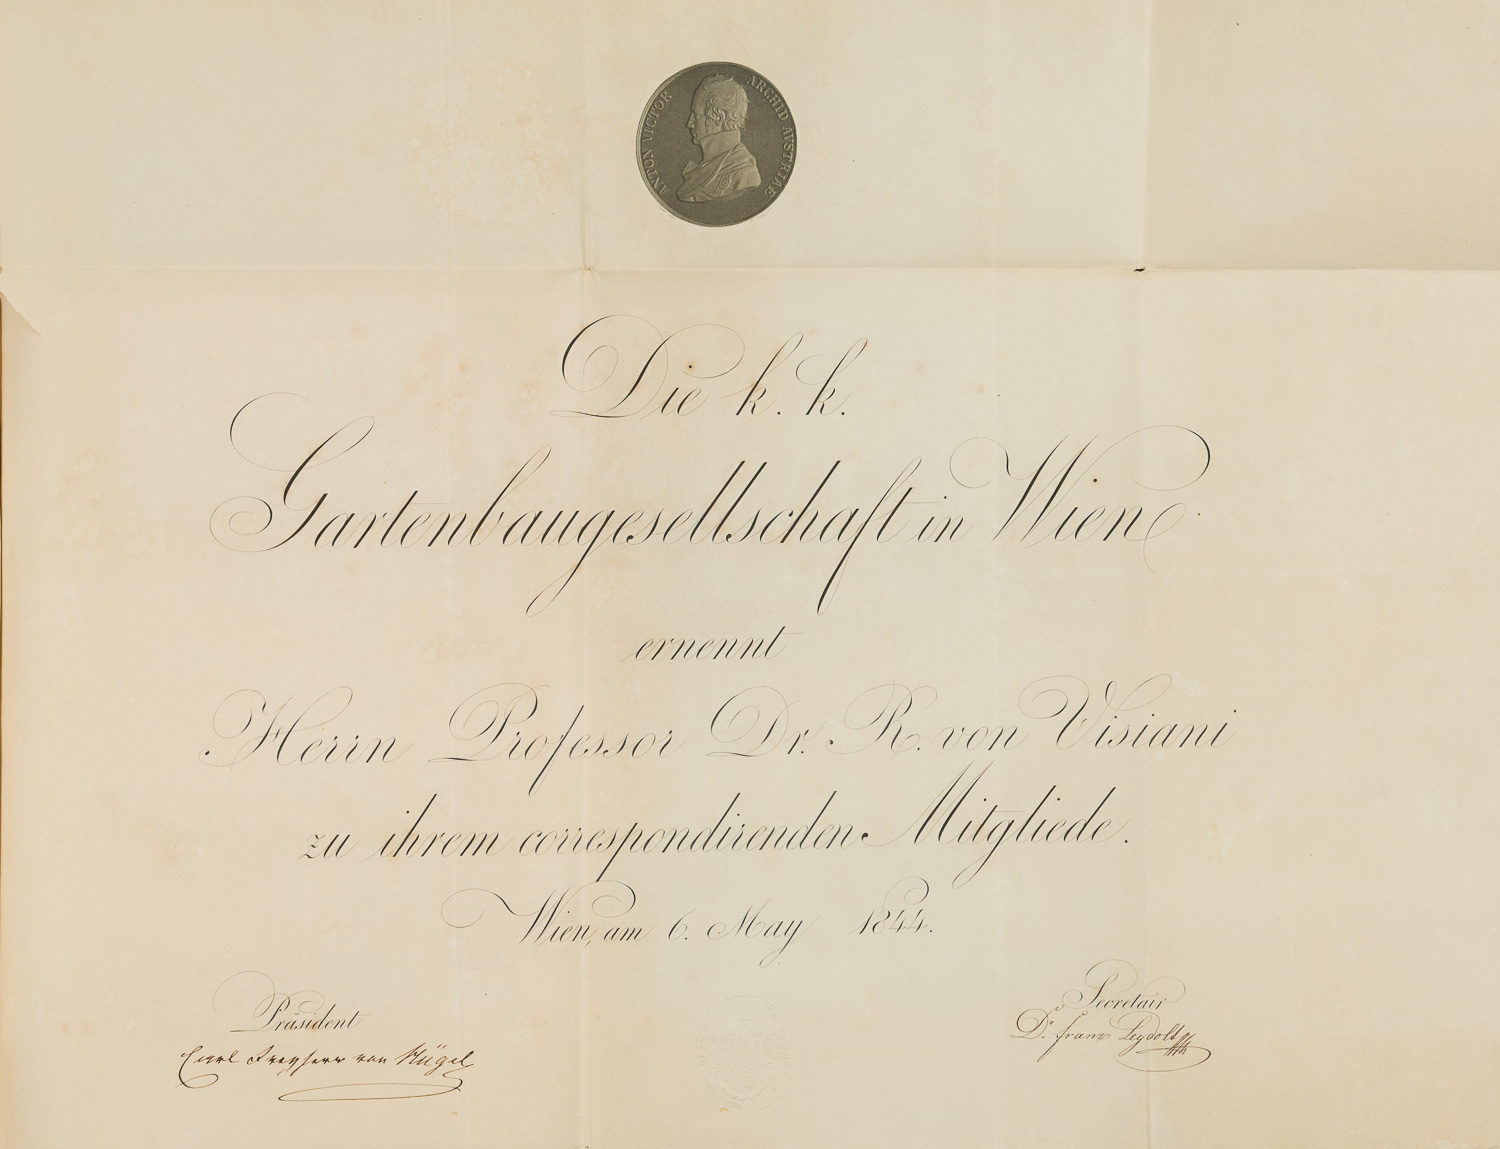 ANTON VICTOR ARCHID AVSTRIAE
Die k. k.
Gartenbaugesellschaft in Wien
ernennt
Herrn Professor Dr. R. von Visiani
zu ihrem correspondirenden Mitgliede.
Wien, am 6. May 1844.
Präsident
Carl Freyherr von Hügel
Secretair
Dr. franz Leydolt